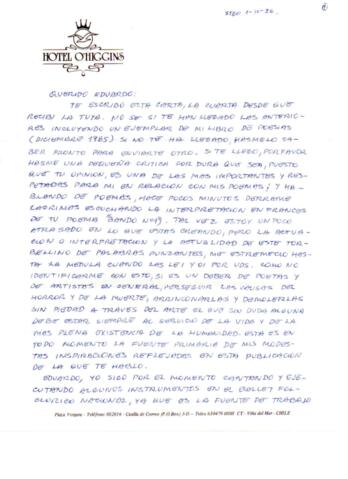 STGO 1-11-86.
HOTEL O'HIGGINS
QUERIDO EDUARDO:
TE ESCRIBO ESTA CARTA, LA CUARTA DESDE QUE
RECIBI LA TUYA. NO SE SI TE HAN LLEGADO LAS ANTERIO-
RES INCLUYENDO UN EJEMPLAR DE MI LIBRO DE POESIAS
(DICIEMBRE 1985) SI NO TE HA LLEGADO, HASMELO SA-
BER PRONTO PARA ENVIARTE OTRO. SI TE LLEGO, POR FAVOR
HASME UNA PEQUEÑA CRITICA POR DURA QUE SEA, PUESTO
QUE TU OPINION, ES UNA DE LAS MAS IMPORTANTES Y RES-
PETADAS PARA MI EN RELACION CON MIS POEMAS; Y HA-
BLANDO DE POEMAS, HACE POCOS MINUTOS DERRAME
LAGRIMAS ESCUCHANDO LA INTERPRETACION EN FRANCES
DE TU POEMA "BANDO Nº19". TAL VEZ ESTOY UN POCO
ATRASADO EN LO QUE ESTAS CREANDO, PERO LA ACTUA-
CION O INTERPRETACION Y LA ACTUALIDAD DE ESTE TOR-
BELLINO DE PALABRAS PUNZANTES, ME ESTREMECIO HAS-
TA LA MEDULA CUANDO LAS LEI Y OI POR VOS. COMO NO
IDENTIFICARME CON ESTO, SI ES UN DEBER DE POETAS Y
DE ARTISTAS EN GENERAL, PERSEGUIR LAS CAUSAS DEL
HORROR Y DE LA MUERTE, ARRINCONARLAS Y DEMOLERLAS
SIN PIEDAD A TRAVES DEL ARTE EL QUE SIN DUDA ALGUNA
DEBE ESTAR SIEMPRE AL SERVICIO DE LA VIDA Y DE LA
MAS PLENA EXISTENCIA DE LA HUMANIDAD. ESTA ES EN
TODO MOMENTO LA FUENTE PRIMARIA DE MIS MODES-
TAS INSPIRACIONES REFLEJADAS EN ESTA PUBLICACION
DE LA QUE TE HABLO.
EDUARDO, YO SIGO POR EL MOMENTO CANTANDO Y EJE-
CUTANDO ALGUNOS INSTRUMENTOS EN EL BALLET FOL-
CLORICO NACIONAL, YA QUE ES LA FUENTE DE TRABAJO
Plaza Vergara - Teléfono: 882016 - Casilla de Correo (P.O. Box) 3-D. - Telex 630479 HOH CT - Viña del Mar - CHILE